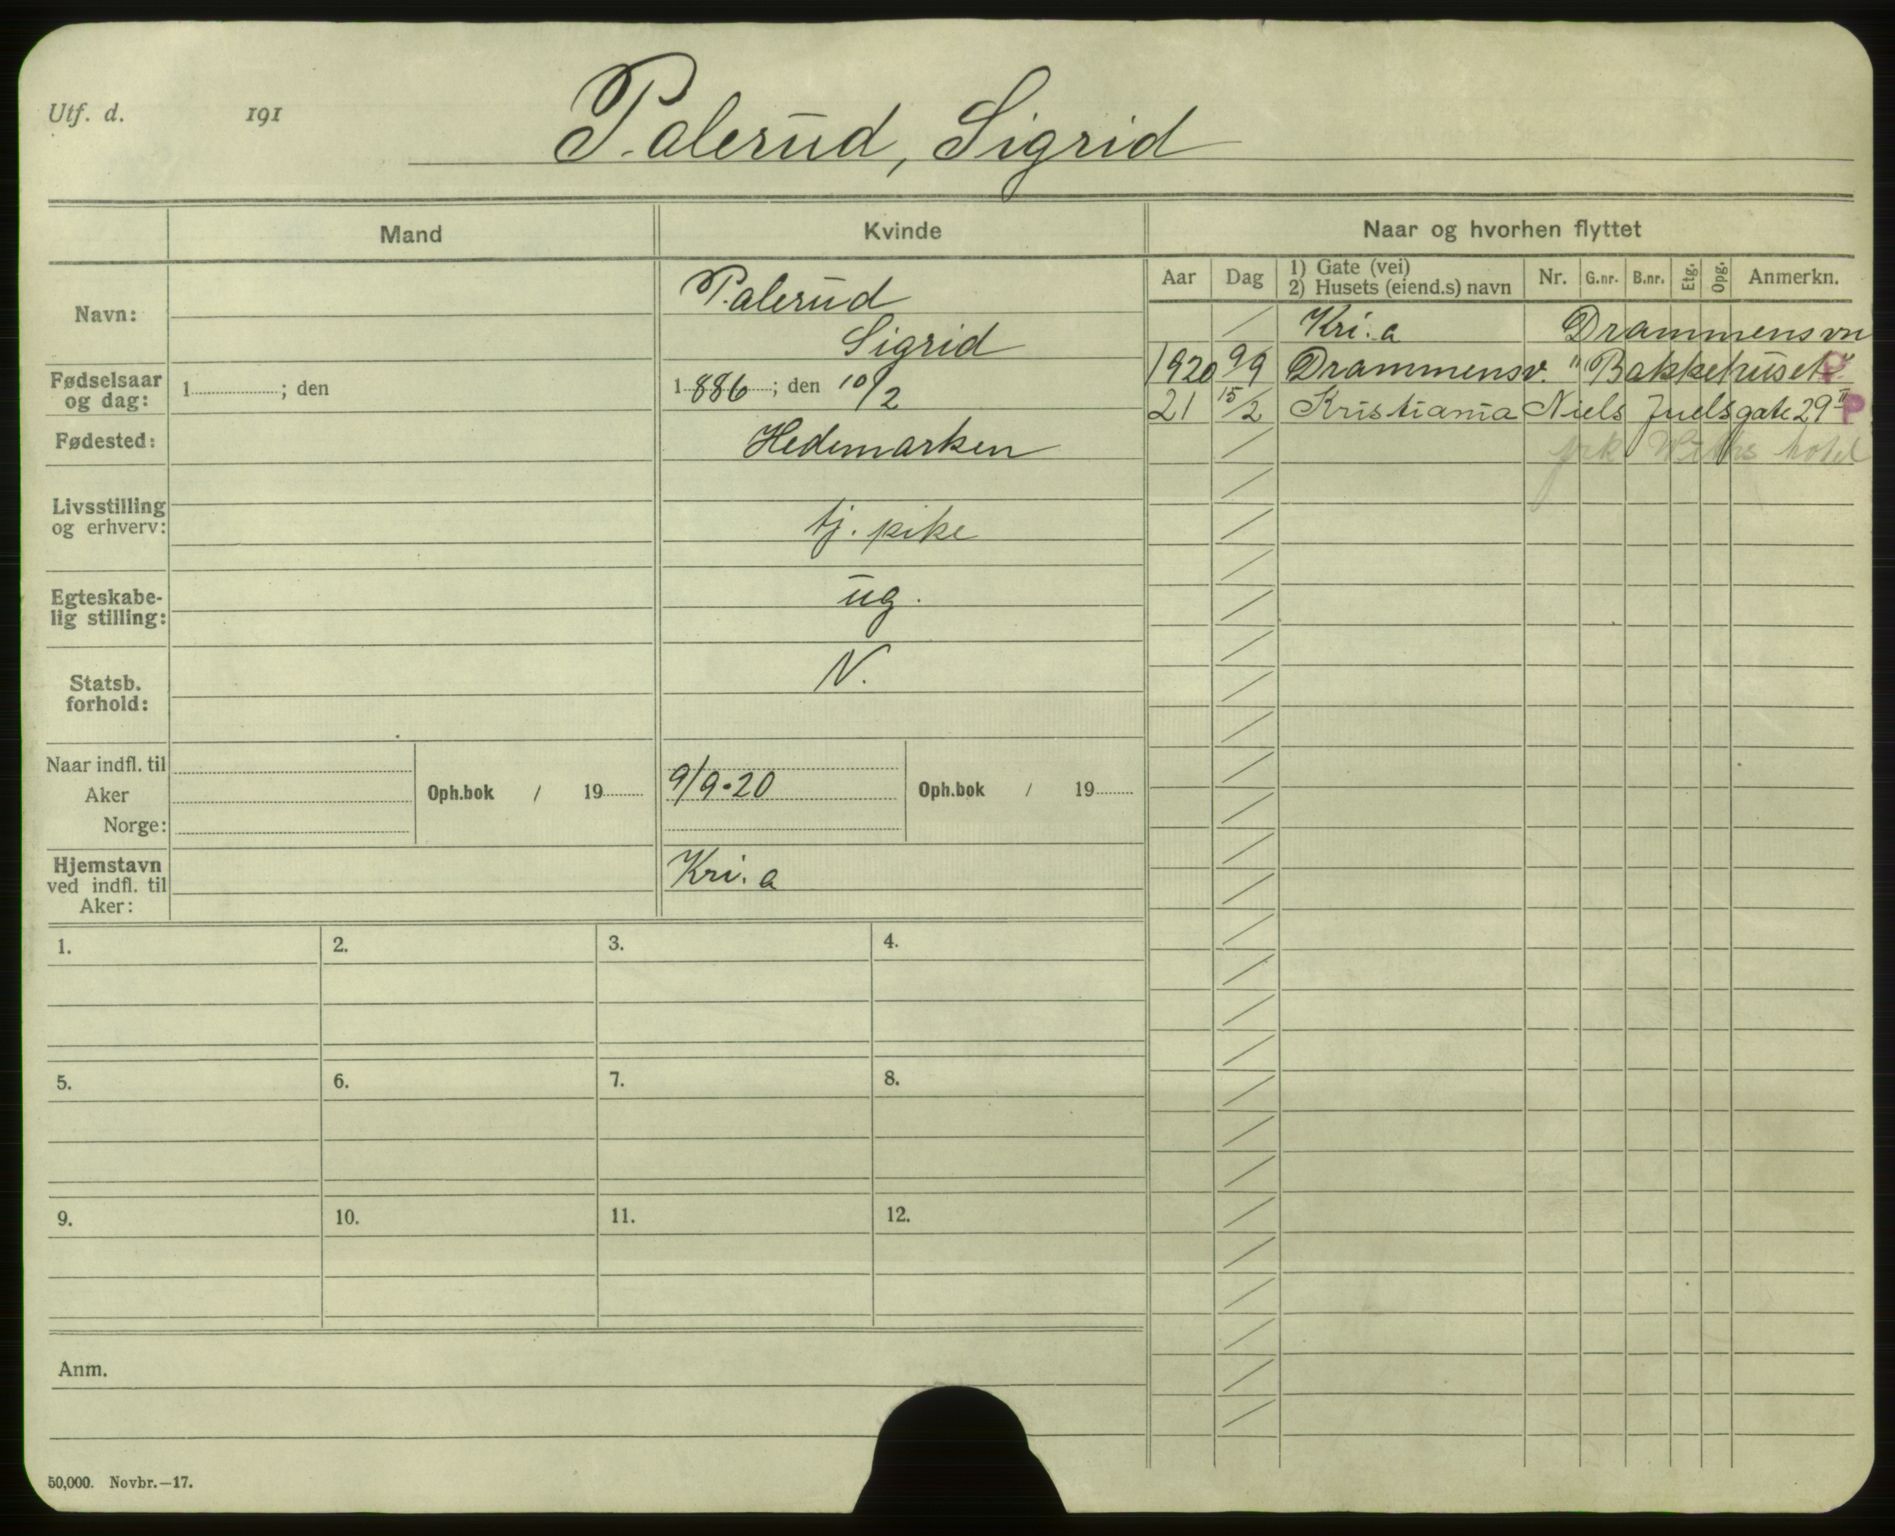 Utf. d. 191
Palerud, Sigrid
Mand Kvinde Naar og hvorhen flyttet
Aar Dag 1) Gate (vei) 2) Husets (eiend.s) navn Nr. G.nr. B.nr. Etg. Opg. Anmerkn.
Navn: Palerud
Sigrid
Fødselsaar og dag: 1 ; den 1886 ; den 10/2
Fødested: Hedemarken
Livsstilling og erhverv: tj. pike
Egteskabelig stilling: ug.
Statsb. forhold: N.
Naar indfl. til Aker Norge: Oph.bok / 19 9/9-20 Oph.bok / 19
Hjemstavn ved indfl. til Aker: Kri.a
/ Kri.a Drammensvn
1920 9/9 Drammensv. "Bakkehuset" P
21 15/2 Kristiania Niels Juelsgate 29 II P
hotel
1. 2. 3. 4.
5. 6. 7. 8.
9. 10. 11. 12.
Anm.
50,000. Novbr.—17.